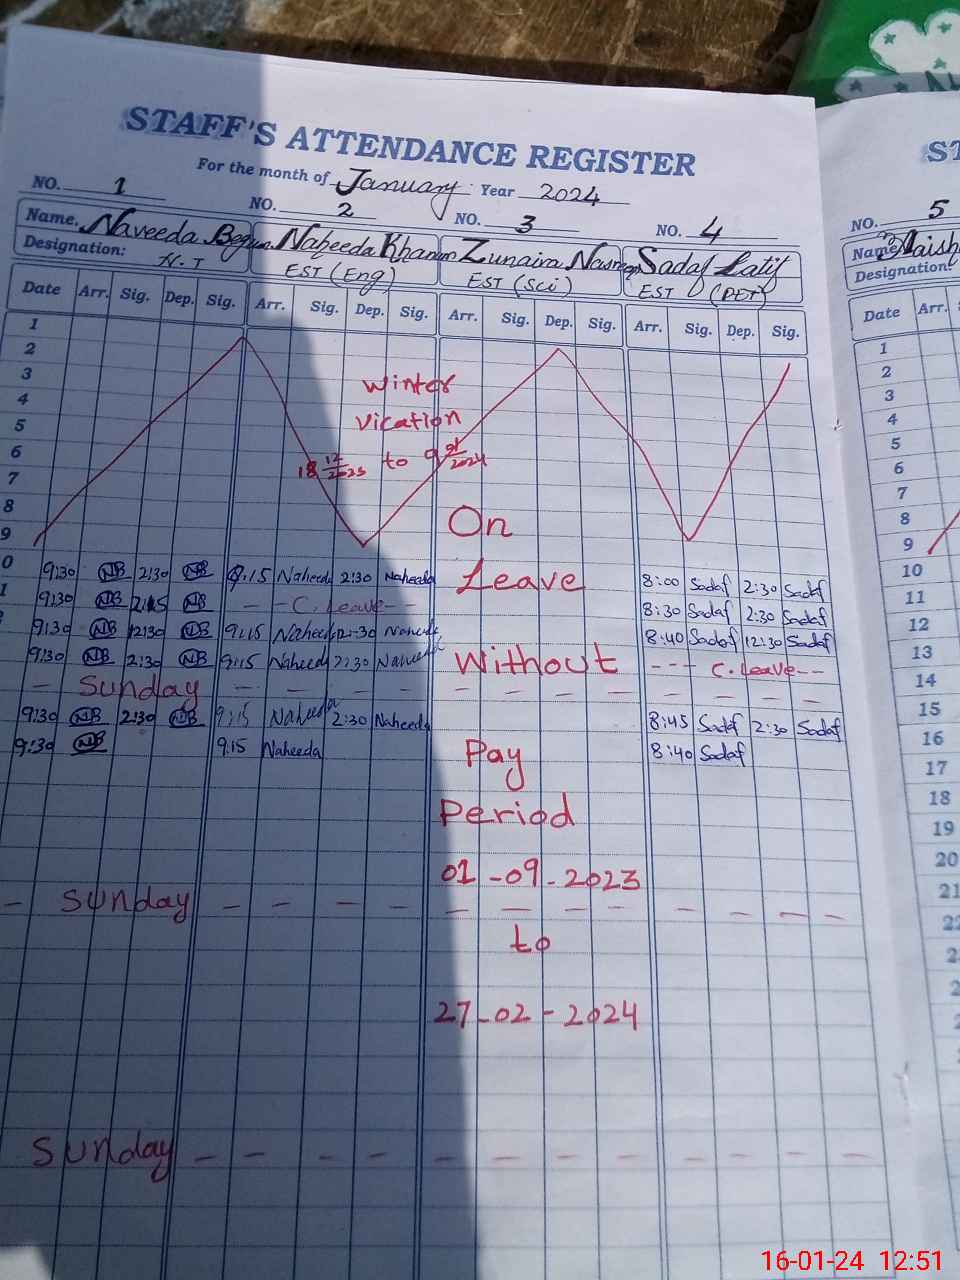 STAFF'S ATTENDANCE REGISTER
For the month of January Year 2024
NO. 1 NO. 2 NO. 3 NO. 4
Name. Naveeda Begum Naheeda Khanum Zunaira Sadaf Latif
Designation: N.T EST (Eng) EST (Sci) EST (PET)
Date Arr. Sig. Dep. Sig. Arr. Sig. Dep. Sig. Arr. Sig. Dep. Sig. Arr. Sig. Dep. Sig.
1
2
3 Winter
4
5 Vication
6 18 12/2023 to 9 01/2024
7
8
9 On
0 9:30 NB 2:30 NB 9:15 Naheeda 2:30 Naheeda Leave 8:00 Sadaf 2:30 Sadaf
1 9:30 NB NB - - C. Leave - - 8:30 Sadaf 2:30 Sadaf
9:30 NB 12:30 NB 9:15 Naheeda 12:30 Naheeda 8:40 Sadaf 12:30 Sadaf
9:30 NB 2:30 NB 9:15 Naheeda 2:30 Naheeda Without - - - C. Leave - -
- Sunday - - - - - - - - - - - -
9:30 NB 2:30 NB 9:15 Naheeda 2:30 Naheeda 8:45 Sadaf 2:30 Sadaf
9:30 NB 9:15 Naheeda Pay 8:40 Sadaf
Period
01-09-2023
- Sunday - - - - - - - - - - - -
to
27-02-2024
Sunday - - - - - - - - - - - -
ST
NO. 5
Name
Designation:
Date Arr.
1
2
3
4
5
6
7
8
9
10
11
12
13
14
15
16
17
18
19
20
21
22
2
2
2
16-01-24 12:51